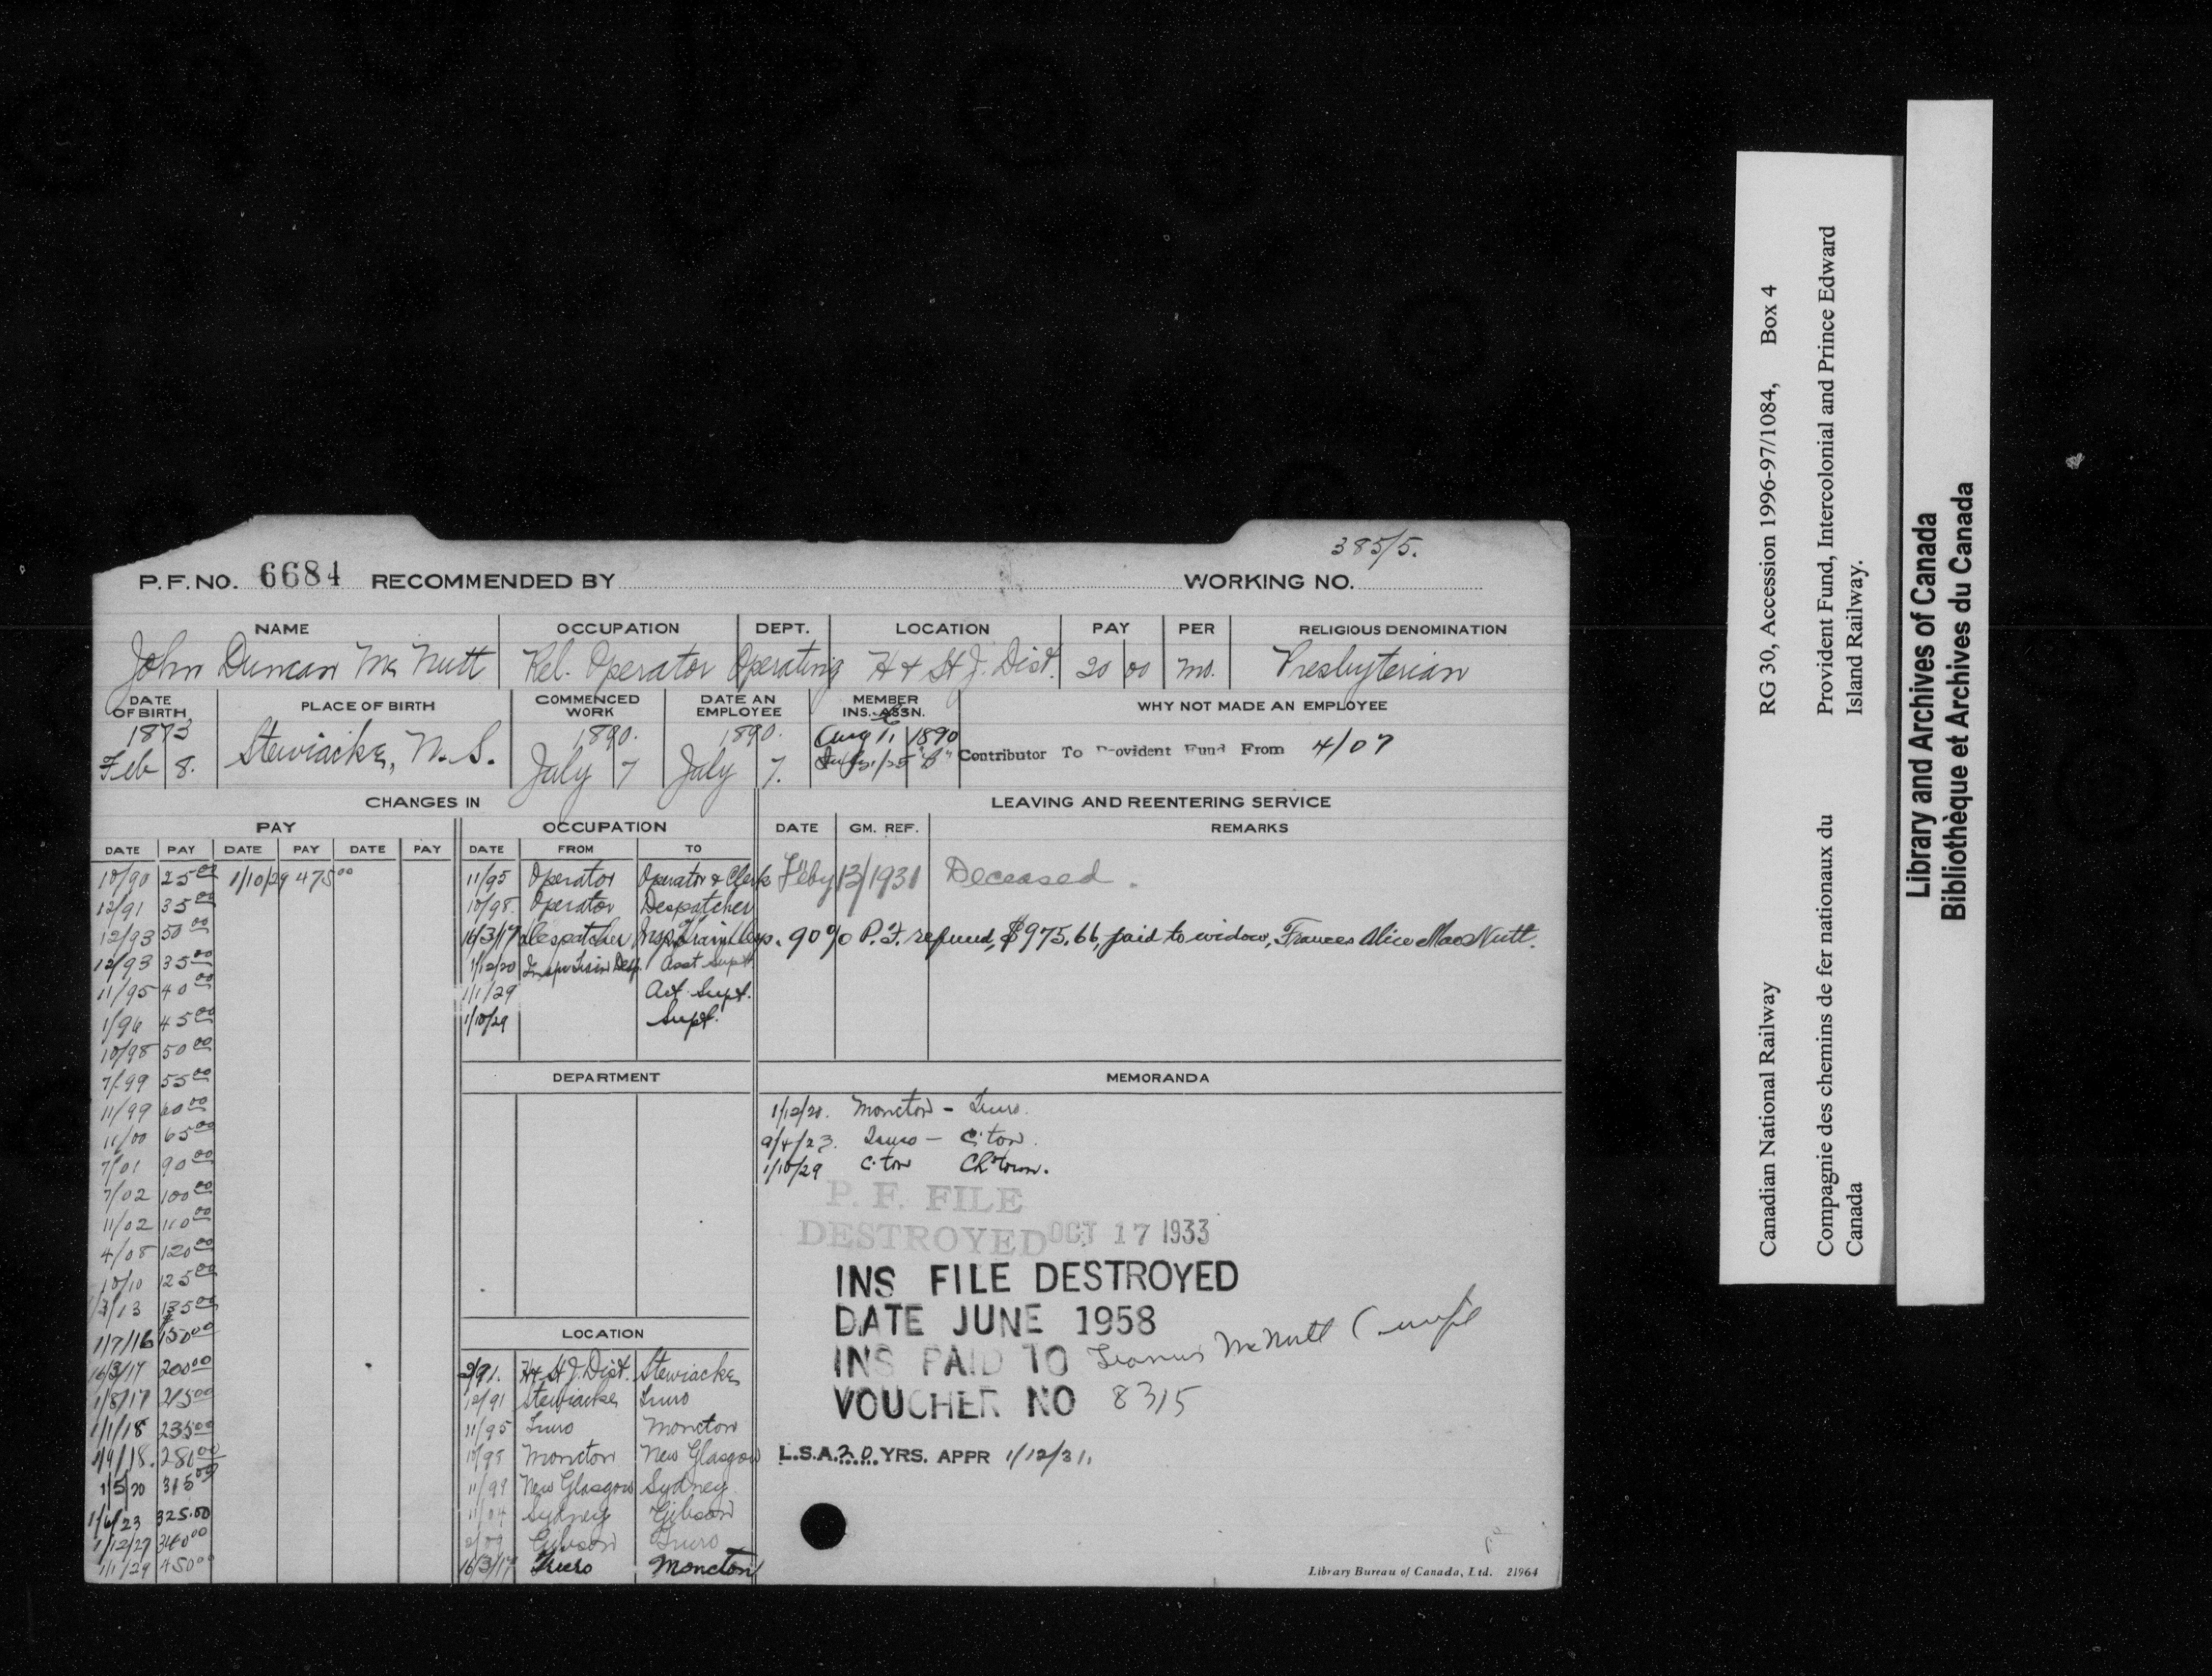 385/5.
P.F. NO. 6684 RECOMMENDED BY WORKING NO.
NAME OCCUPATION DEPT. LOCATION PAY PER RELIGIOUS DENOMINATION
John Duncan Mc Nutt Rel. Operator Operating H & St J. Dist. 20 00 mo. Presbyterian
DATE OF BIRTH PLACE OF BIRTH COMMENCED WORK DATE AN EMPLOYEE MEMBER INS. ASSN. WHY NOT MADE AN EMPLOYEE
1873 1890. 1890. Aug 1, 1890
Feb 8. Stewiacke, N.S. July 7 July 7. "B" Contributor To Provident Fund From 4/07
CHANGES IN LEAVING AND REENTERING SERVICE
PAY OCCUPATION DATE GM. REF. REMARKS
DATE PAY DATE PAY DATE PAY DATE FROM TO
10/90 25 00 1/10/29 475 00 11/95 Operator Operator & Clerk Feby 13/1931 Deceased.
12/91 35 00 10/98. Operator Despatcher
12/93 50 00 16/3/17 Despatcher Insp Train Desp. 90% P.F. refund, $975.66, paid to widow, Frances Alice MacNutt.
12/93 35 00 1/12/20 Inspr Train Desp. Asst Supt.
11/95 40 00 1/1/29 Act. Supt.
1/96 45 00 1/10/29 Supt.
10/98 50 00
7/99 55 00 DEPARTMENT MEMORANDA
11/99 60 00 1/12/20. Moncton - Truro.
11/00 65 00 9/4/23. Truro - C'ton.
7/01 90 00 1/10/29 C'ton Ch'town.
7/02 100 00 P. F. FILE
11/02 110 00 DESTROYED OCT 17 1933
4/08 120 00 INS FILE DESTROYED
10/10 125 00 DATE JUNE 1958
3/13 135 00 INS PAID TO Frances McNutt (wife
1/7/16 150 00 LOCATION
16/3/17 200 00 2/91. H & St J. Dist. Stewiacke VOUCHER NO 8315
1/8/17 215 00 12/91 Stewiacke Truro
1/1/18 235 00 11/95 Truro Moncton
1/9/18. 280 00 10/98 Moncton New Glasgow L.S.A. 30 YRS. APPR 1/12/31.
1/5/20 315 00 11/99 New Glasgow Sydney
1/6/23 325.00 11/04 Sydney Gibson
1/12/27 340 00 2/09 Gibson Truro
1/1/29 450 00 16/3/17 Truro Moncton
Library Bureau of Canada, Ltd. 21964
Canadian National Railway RG 30, Accession 1996-97/1084, Box 4
Compagnie des chemins de fer nationaux du Canada
Provident Fund, Intercolonial and Prince Edward Island Railway.
Library and Archives of Canada
Bibliothèque et Archives du Canada